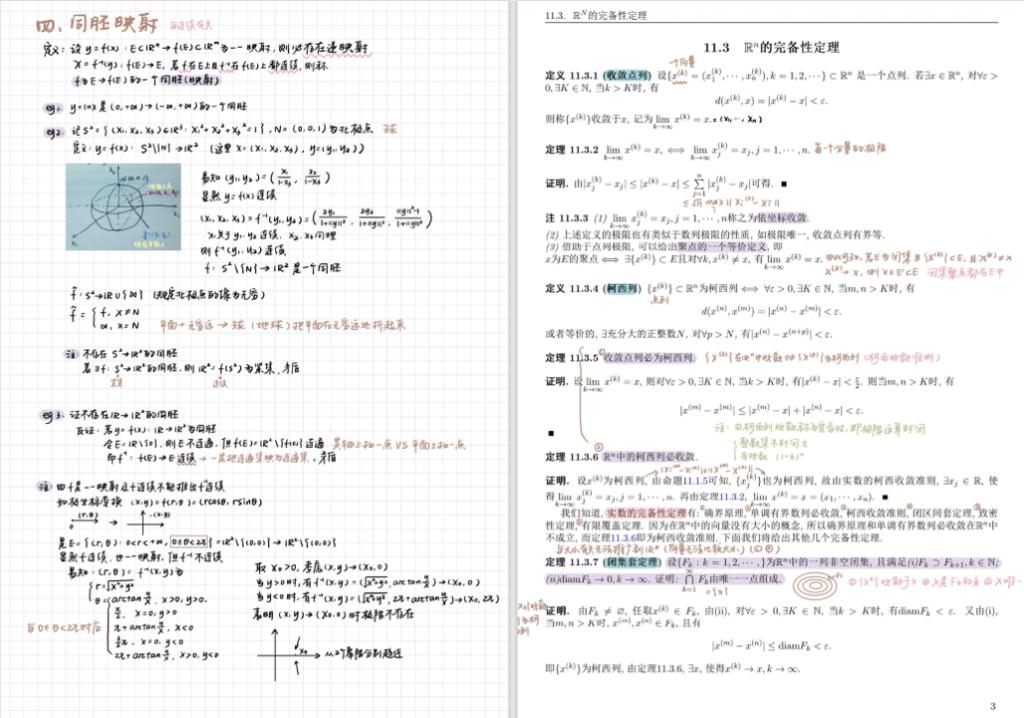 四、同胚映射 与连续有关
定义: 设 y=f(x): E⊂ℝⁿ→f(E)⊂ℝᵐ为一一映射, 则必存在逆映射
x=f⁻¹(y): f(E)→E, 若f在E上且f⁻¹在f(E)上都连续, 则称
f为E→f(E)的一个同胚(映射)
eg1. y=lnx是(0,+∞)→(-∞,+∞)的一个同胚
eg2. 记S²={(x₁,x₂,x₃)∈ℝ³: x₁²+x₂²+x₃²=1}, N=(0,0,1)为北极点 球
定义: y=f(x): S²\{N}→ℝ² (这里 x=(x₁,x₂,x₃), y=(y₁,y₂))
易知(y₁,y₂)=(x₁/(1-x₃), x₂/(1-x₃))
显然 y=f(x)连续
(x₁,x₂,x₃)=f⁻¹(y₁,y₂)=(2y₁/(1+‖y‖²), 2y₂/(1+‖y‖²), (‖y‖²-1)/(1+‖y‖²))
x₁关于y₁,y₂连续, x₂,x₃同理
则 f⁻¹(y₁,y₂)连续
f: S²\{N}→ℝ²是一个同胚
f̃: S²→ℝ∪{∞} (规定北极点的像为无穷)
f̃={f, x≠N
∞, x=N
平面+无穷远→球 (地球) 把平面在无穷远处折起来
注: 不存在 S²→ℝ²的同胚
若∃f: S²→ℝ²的同胚, 则ℝ²=f(S²)为紧集, 矛盾
紧集 连续
eg3. 证不存在ℝ→ℝ²的同胚
反证: 若y=f(x): ℝ→ℝ²为同胚
令E=ℝ\{0}, 则E不连通, 但f(E)=ℝ²\{f(0)}连通 实轴上扣一点 VS 平面上扣一点
即f⁻¹: f(E)→E连续→一定把连通集映为连通集, 矛盾
注: 四 f是一一映射且f连续不能推出f⁻¹连续
如极坐标变换 (x,y)=f(r,θ)=(rcosθ, rsinθ)
(r,θ) (x,y)
是E={(r,θ): 0<r<+∞, 0≤θ<2π}→ℝ²\{(0,0)}
显然f连续, 且一一映射, 但f⁻¹不连续
易知: (r,θ)=f⁻¹(x,y)为
r=√(x²+y²)
θ=arctan y/x, x>0, y>0.
π/2, x=0, y>0
π+arctan y/x, x<0
3/2π, x=0, y<0
2π+arctan y/x, x>0, y<0
与0≤θ<2π对应
取x₀>0, 考虑(x,y)→(x₀,0)
当y>0时, 有f⁻¹(x,y)=(√(x²+y²), arctan y/x)→(x₀,0)
当y<0时, 有f⁻¹(x,y)=(√(x²+y²), 2π+arctan y/x)→(x₀,2π)
表明(x,y)→(x₀,0)时极限不存在
x₀
从2个象限分别趋近
11.3. ℝᴺ的完备性定理
11.3 ℝⁿ的完备性定理
一个向量
定义 11.3.1 (收敛点列) 设{x⁽ᵏ⁾=(x₁⁽ᵏ⁾,⋯,xₙ⁽ᵏ⁾), k=1,2,⋯}⊂ℝⁿ 是一个点列. 若∃x∈ℝⁿ, 对∀ε>
0, ∃K∈ℕ, 当k>K时, 有
d(x⁽ᵏ⁾,x)=|x⁽ᵏ⁾−x|<ε.
则称{x⁽ᵏ⁾}收敛于x, 记为lim_{k→∞} x⁽ᵏ⁾=x.=(x₁,⋯,xₙ)
定理 11.3.2 lim_{k→∞} x⁽ᵏ⁾=x, ⟺ lim_{k→∞} xⱼ⁽ᵏ⁾=xⱼ, j=1,⋯,n. 每一个分量的极限
证明. 由|xⱼ⁽ᵏ⁾−xⱼ|≤|x⁽ᵏ⁾−x|≤∑_{j=1}^{n}|xⱼ⁽ᵏ⁾−xⱼ|可得. ■
注 11.3.3 (1) lim_{k→∞} xⱼ⁽ᵏ⁾=xⱼ, j=1,⋯,n称之为依坐标收敛.
(2) 上述定义的极限也有类似于数列极限的性质, 如极限唯一, 收敛点列有界等.
(3) 借助于点列极限, 可以给出聚点的一个等价定义, 即
x为E的聚点⟺∃{x⁽ᵏ⁾}⊂E且对∀k, x⁽ᵏ⁾≠x, 有lim_{k→∞} x⁽ᵏ⁾=x.
闭集聚点都在E中
定义 11.3.4 (柯西列) {x⁽ᵏ⁾}⊂ℝⁿ为柯西列⟺∀ε>0, ∃K∈ℕ, 当m,n>K时, 有
点列
d(x⁽ⁿ⁾,x⁽ᵐ⁾)=|x⁽ⁿ⁾−x⁽ᵐ⁾|<ε.
或者等价的, ∃充分大的正整数N, 对∀p>N, 有|x⁽ⁿ⁾−x⁽ⁿ⁺ᵖ⁾|<ε.
定理 11.3.5 收敛点列必为柯西列. {x⁽ᵏ⁾}在ℝⁿ中收敛⟺{x⁽ᵏ⁾}为柯西列 (柯西收敛准则)
证明. 设lim_{k→∞} x⁽ᵏ⁾=x, 则对∀ε>0, ∃K∈ℕ, 当k>K时, 有|x⁽ᵏ⁾−x|<ε/2. 则当m,n>K时, 有
|x⁽ᵐ⁾−x⁽ⁿ⁾|≤|x⁽ᵐ⁾−x|+|x⁽ⁿ⁾−x|<ε.
■
定理 11.3.6 ℝⁿ中的柯西列必收敛.
证明. 设x⁽ᵏ⁾为柯西列, 由命题11.1.5可知, {xⱼ⁽ᵏ⁾}也为柯西列, 故由实数的柯西收敛准则, ∃xⱼ∈ℝ, 使
得lim_{k→∞} xⱼ⁽ᵏ⁾=xⱼ, j=1,⋯,n. 再由定理11.3.2, lim_{k→∞} x⁽ᵏ⁾=x=(x₁,⋯,xₙ). ■
我们知道, 实数的完备性定理有: 确界原理, 单调有界数列必收敛, 柯西收敛准则, 闭区间套定理, 致密
性定理, 有限覆盖定理. 因为在ℝⁿ中的向量没有大小的概念, 所以确界原理和单调有界数列必收敛在ℝⁿ中
不成立, 而定理11.3.6即为柯西收敛准则. 下面我们将给出其他几个完备性定理.
定理 11.3.7 (闭集套定理) 设{Fₖ: k=1,2,⋯,}为ℝⁿ中的一列非空闭集, 且满足(i)Fₖ⊃Fₖ₊₁, k∈ℕ;
(ii)diamFₖ→0, k→∞. 证明: ⋂_{k=1}^{∞}Fₖ由唯一一点组成.
={x}
证明. 由Fₖ≠∅, 任取x⁽ᵏ⁾∈Fₖ, 由(ii), 对∀ε>0, ∃K∈ℕ, 当k>K时, 有diamFₖ<ε. 又由(i),
当m,n>K时, x⁽ᵐ⁾,x⁽ⁿ⁾∈Fₖ, 且有
|x⁽ᵐ⁾−x⁽ⁿ⁾|≤diamFₖ<ε.
即{x⁽ᵏ⁾}为柯西列, 由定理11.3.6, ∃x, 使得x⁽ᵏ⁾→x, k→∞.
3